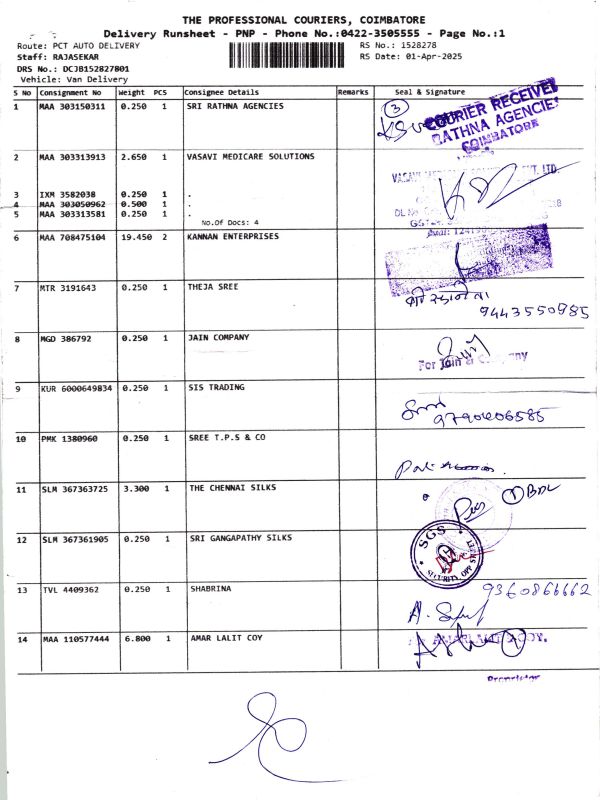 THE PROFESSIONAL COURIERS, COIMBATORE
Delivery Runsheet - PNP - Phone No.:0422-3505555 - Page No.:1
Route: PCT AUTO DELIVERY RS No.: 1528278
Staff: RAJASEKAR RS Date: 01-Apr-2025
DRS No.: DCJB152827801
Vehicle: Van Delivery
S No Consignment No Weight PCS Consignee Details Remarks Seal & Signature
1 MAA 303150311 0.250 1 SRI RATHNA AGENCIES
3
COURIER RECEIVED
RATHNA AGENCIES
COIMBATORE
2 MAA 303313913 2.650 1 VASAVI MEDICARE SOLUTIONS
3 IXM 3582038 0.250 1 .
4 MAA 303050962 0.500 1 .
5 MAA 303313581 0.250 1 .
No.Of Docs: 4
6 MAA 708475104 19.450 2 KANNAN ENTERPRISES
7 MTR 3191643 0.250 1 THEJA SREE
9443550985
8 MGD 386792 0.250 1 JAIN COMPANY
For Jain & Company
9 KUR 6000649834 0.250 1 SIS TRADING
9790406585
10 PMK 1380960 0.250 1 SREE T.P.S & CO
11 SLM 367363725 3.300 1 THE CHENNAI SILKS
12 SLM 367361905 0.250 1 SRI GANGAPATHY SILKS
SGS
13 TVL 4409362 0.250 1 SHABRINA
9360866662
14 MAA 110577444 6.800 1 AMAR LALIT COY
Proprietor